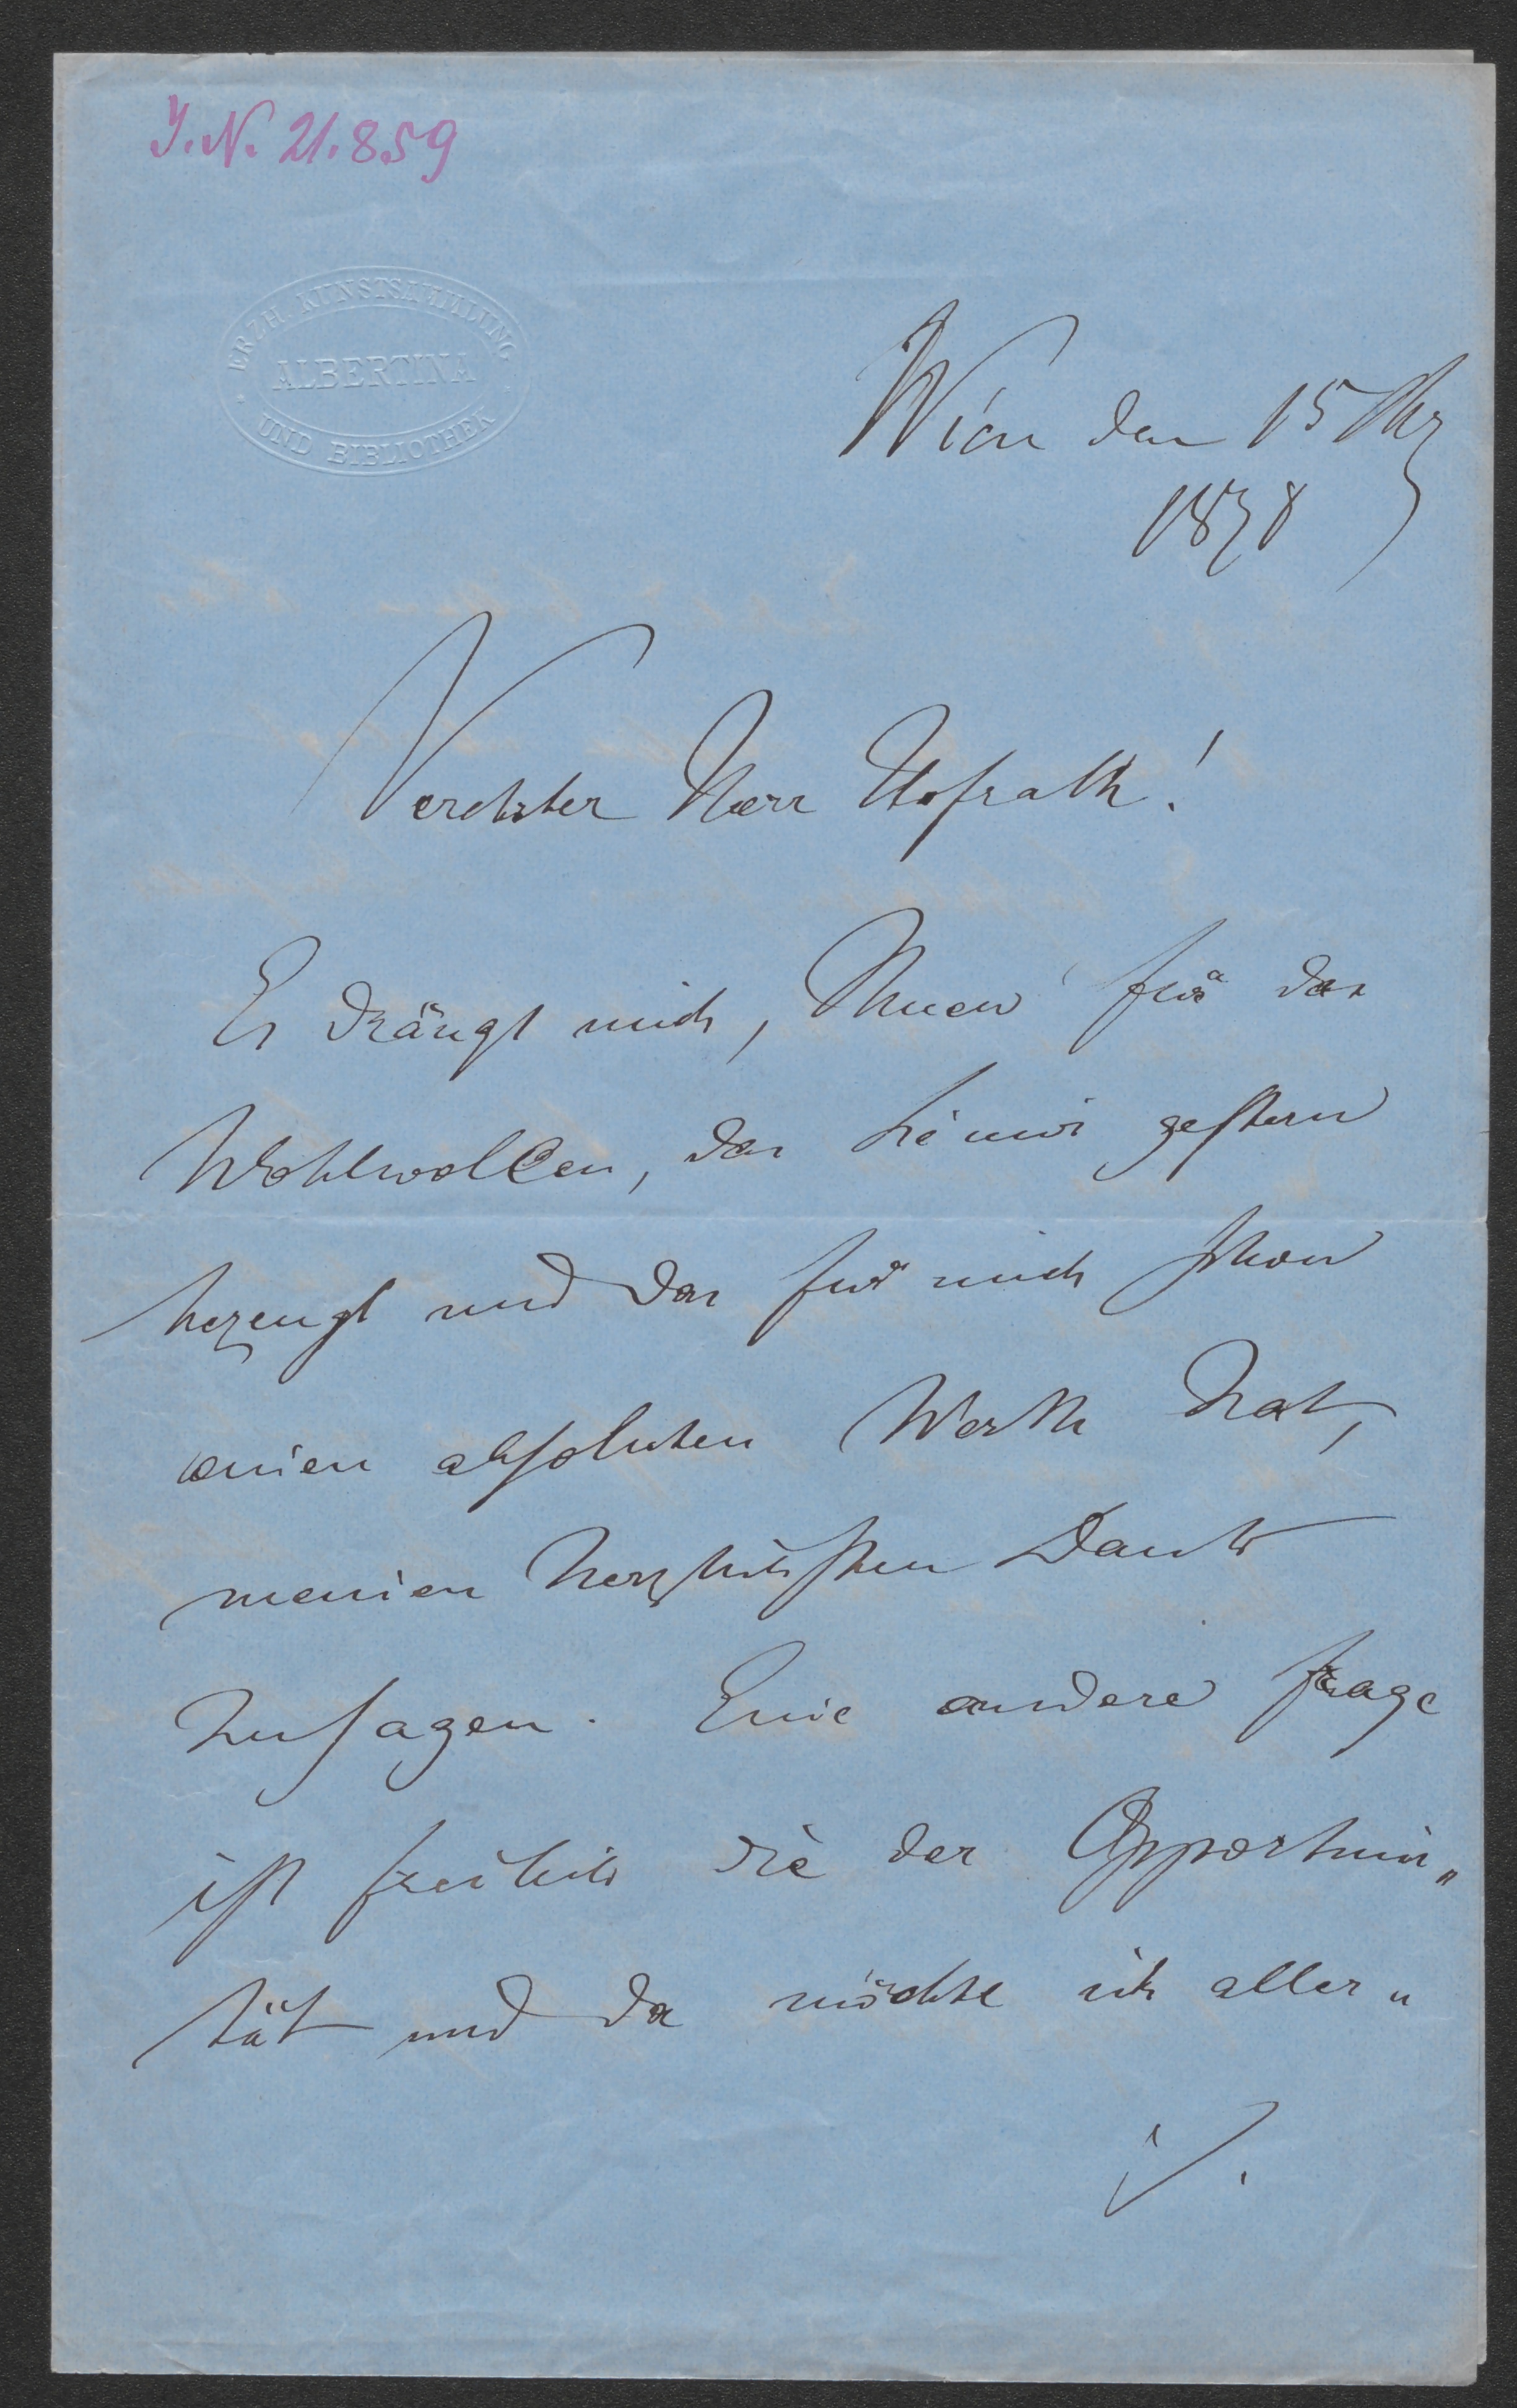 J.N. 21.859
ERZH. KUNSTSAMMLUNG
ALBERTINA
UND BIBLIOTHEK
Wien den 15
1878
Verehrter Herr Hofrath!
Es drängt mich, Ihnen für das
Wohlwollen, das Sie mir gestern
bezeugt und das für mich schon
einen absoluten Werth hat,
meinen herzlichsten Dank
zu sagen. Eine andere Frage
ist freilich die der Opportuni„
tät und da möchte ich aller„